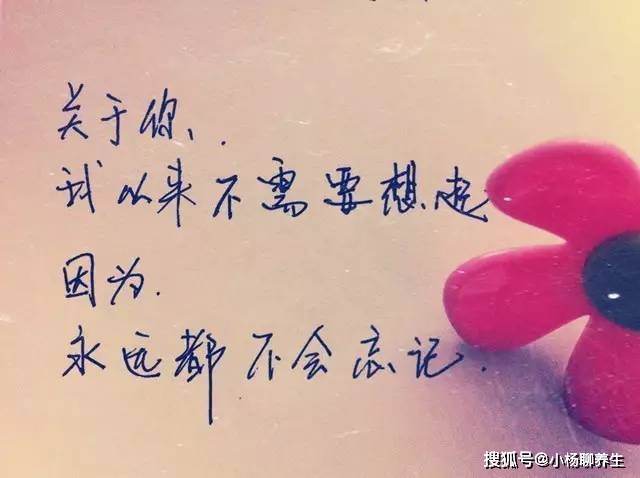 关于你、.
我从来不需要想起
因为.
永远都不会忘记.
搜狐号@小杨聊养生